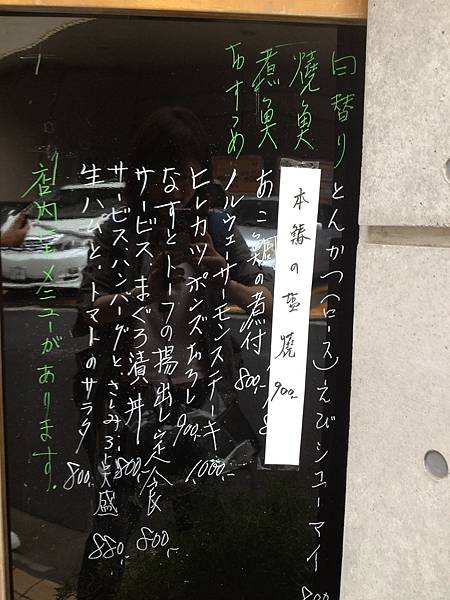 日替り とんかつ(ロース)えびシューマイ 800
焼魚 本鰆の塩焼 900-
煮魚 あこう鯛の煮付 800-
おすすめ ノルウェーサーモンステーキ 1000-
ヒレカツポンズおろし 900-
なすとトーフの揚出し定食 800-
サービス まぐろ漬丼 800-
サービス、ハンバーグと、さしみ3点盛 880-
生ハムと、トマトのサラダ 800-
店内にメニューがあります。